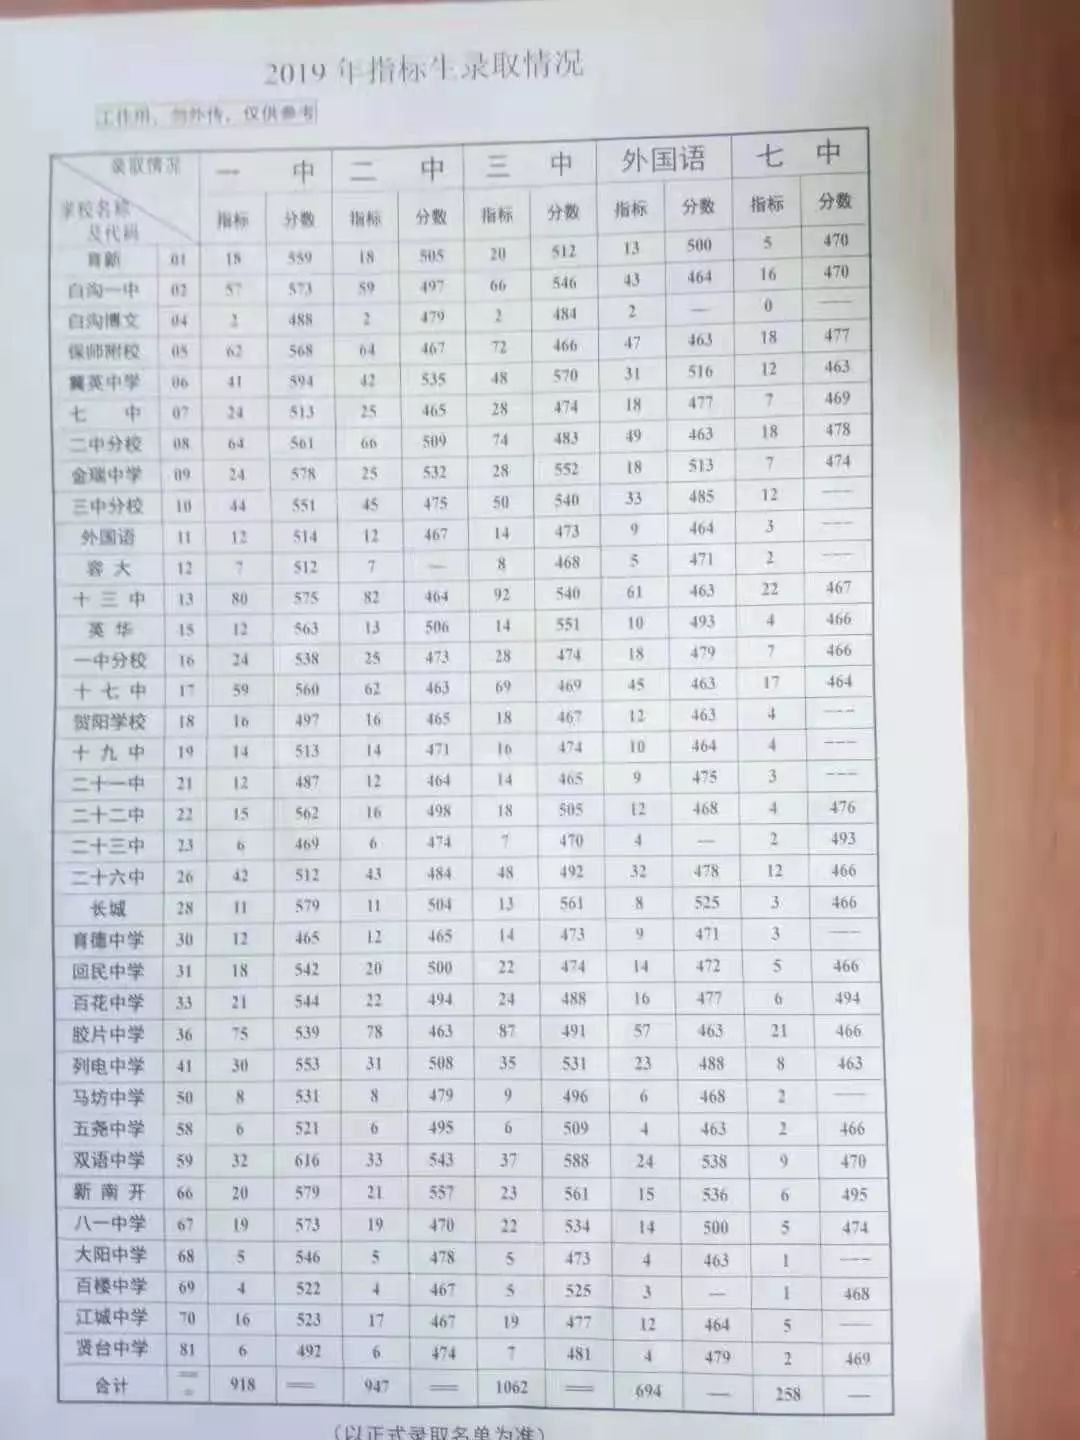 2019 年指标生录取情况
工作用，勿外传，仅供参考
录取情况 一 中 二 中 三 中 外国语 七 中
学校名称及代码 指标 分数 指标 分数 指标 分数 指标 分数 指标 分数
育新 01 18 559 18 505 20 512 13 500 5 470
白沟一中 02 57 573 59 497 66 546 43 464 16 470
白沟博文 04 2 488 2 479 2 484 2 — 0 ---
保师附校 05 62 568 64 467 72 466 47 463 18 477
冀英中学 06 41 594 42 535 48 570 31 516 12 463
七 中 07 24 513 25 465 28 474 18 477 7 469
二中分校 08 64 561 66 509 74 483 49 463 18 478
金瑞中学 09 24 578 25 532 28 552 18 513 7 474
三中分校 10 44 551 45 475 50 540 33 485 12 ---
外国语 11 12 514 12 467 14 473 9 464 3 ---
容 大 12 7 512 7 — 8 468 5 471 2 ---
十 三 中 13 80 575 82 464 92 540 61 463 22 467
英 华 15 12 563 13 506 14 551 10 493 4 466
一中分校 16 24 538 25 473 28 474 18 479 7 466
十 七 中 17 59 560 62 463 69 469 45 463 17 464
贺阳学校 18 16 497 16 465 18 467 12 463 4 ---
十 九 中 19 14 513 14 471 16 474 10 464 4 ---
二十一中 21 12 487 12 464 14 465 9 475 3 ---
二十二中 22 15 562 16 498 18 505 12 468 4 476
二十三中 23 6 469 6 474 7 470 4 — 2 493
二十六中 26 42 512 43 484 48 492 32 478 12 466
长城 28 11 579 11 504 13 561 8 525 3 466
育德中学 30 12 465 12 465 14 473 9 471 3 ---
回民中学 31 18 542 20 500 22 474 14 472 5 466
百花中学 33 21 544 22 494 24 488 16 477 6 494
胶片中学 36 75 539 78 463 87 491 57 463 21 466
列电中学 41 30 553 31 508 35 531 23 488 8 463
马坊中学 50 8 531 8 479 9 496 6 468 2 ---
五尧中学 58 6 521 6 495 6 509 4 463 2 466
双语中学 59 32 616 33 543 37 588 24 538 9 470
新 南 开 66 20 579 21 557 23 561 15 536 6 495
八一中学 67 19 573 19 470 22 534 14 500 5 474
大阳中学 68 5 546 5 478 5 473 4 463 1 ---
百楼中学 69 4 522 4 467 5 525 3 — 1 468
江城中学 70 16 523 17 467 19 477 12 464 5 ---
贤台中学 81 6 492 6 474 7 481 4 479 2 469
合计 == 918 == 947 == 1062 == 694 — 258 —
（以正式录取名单为准）